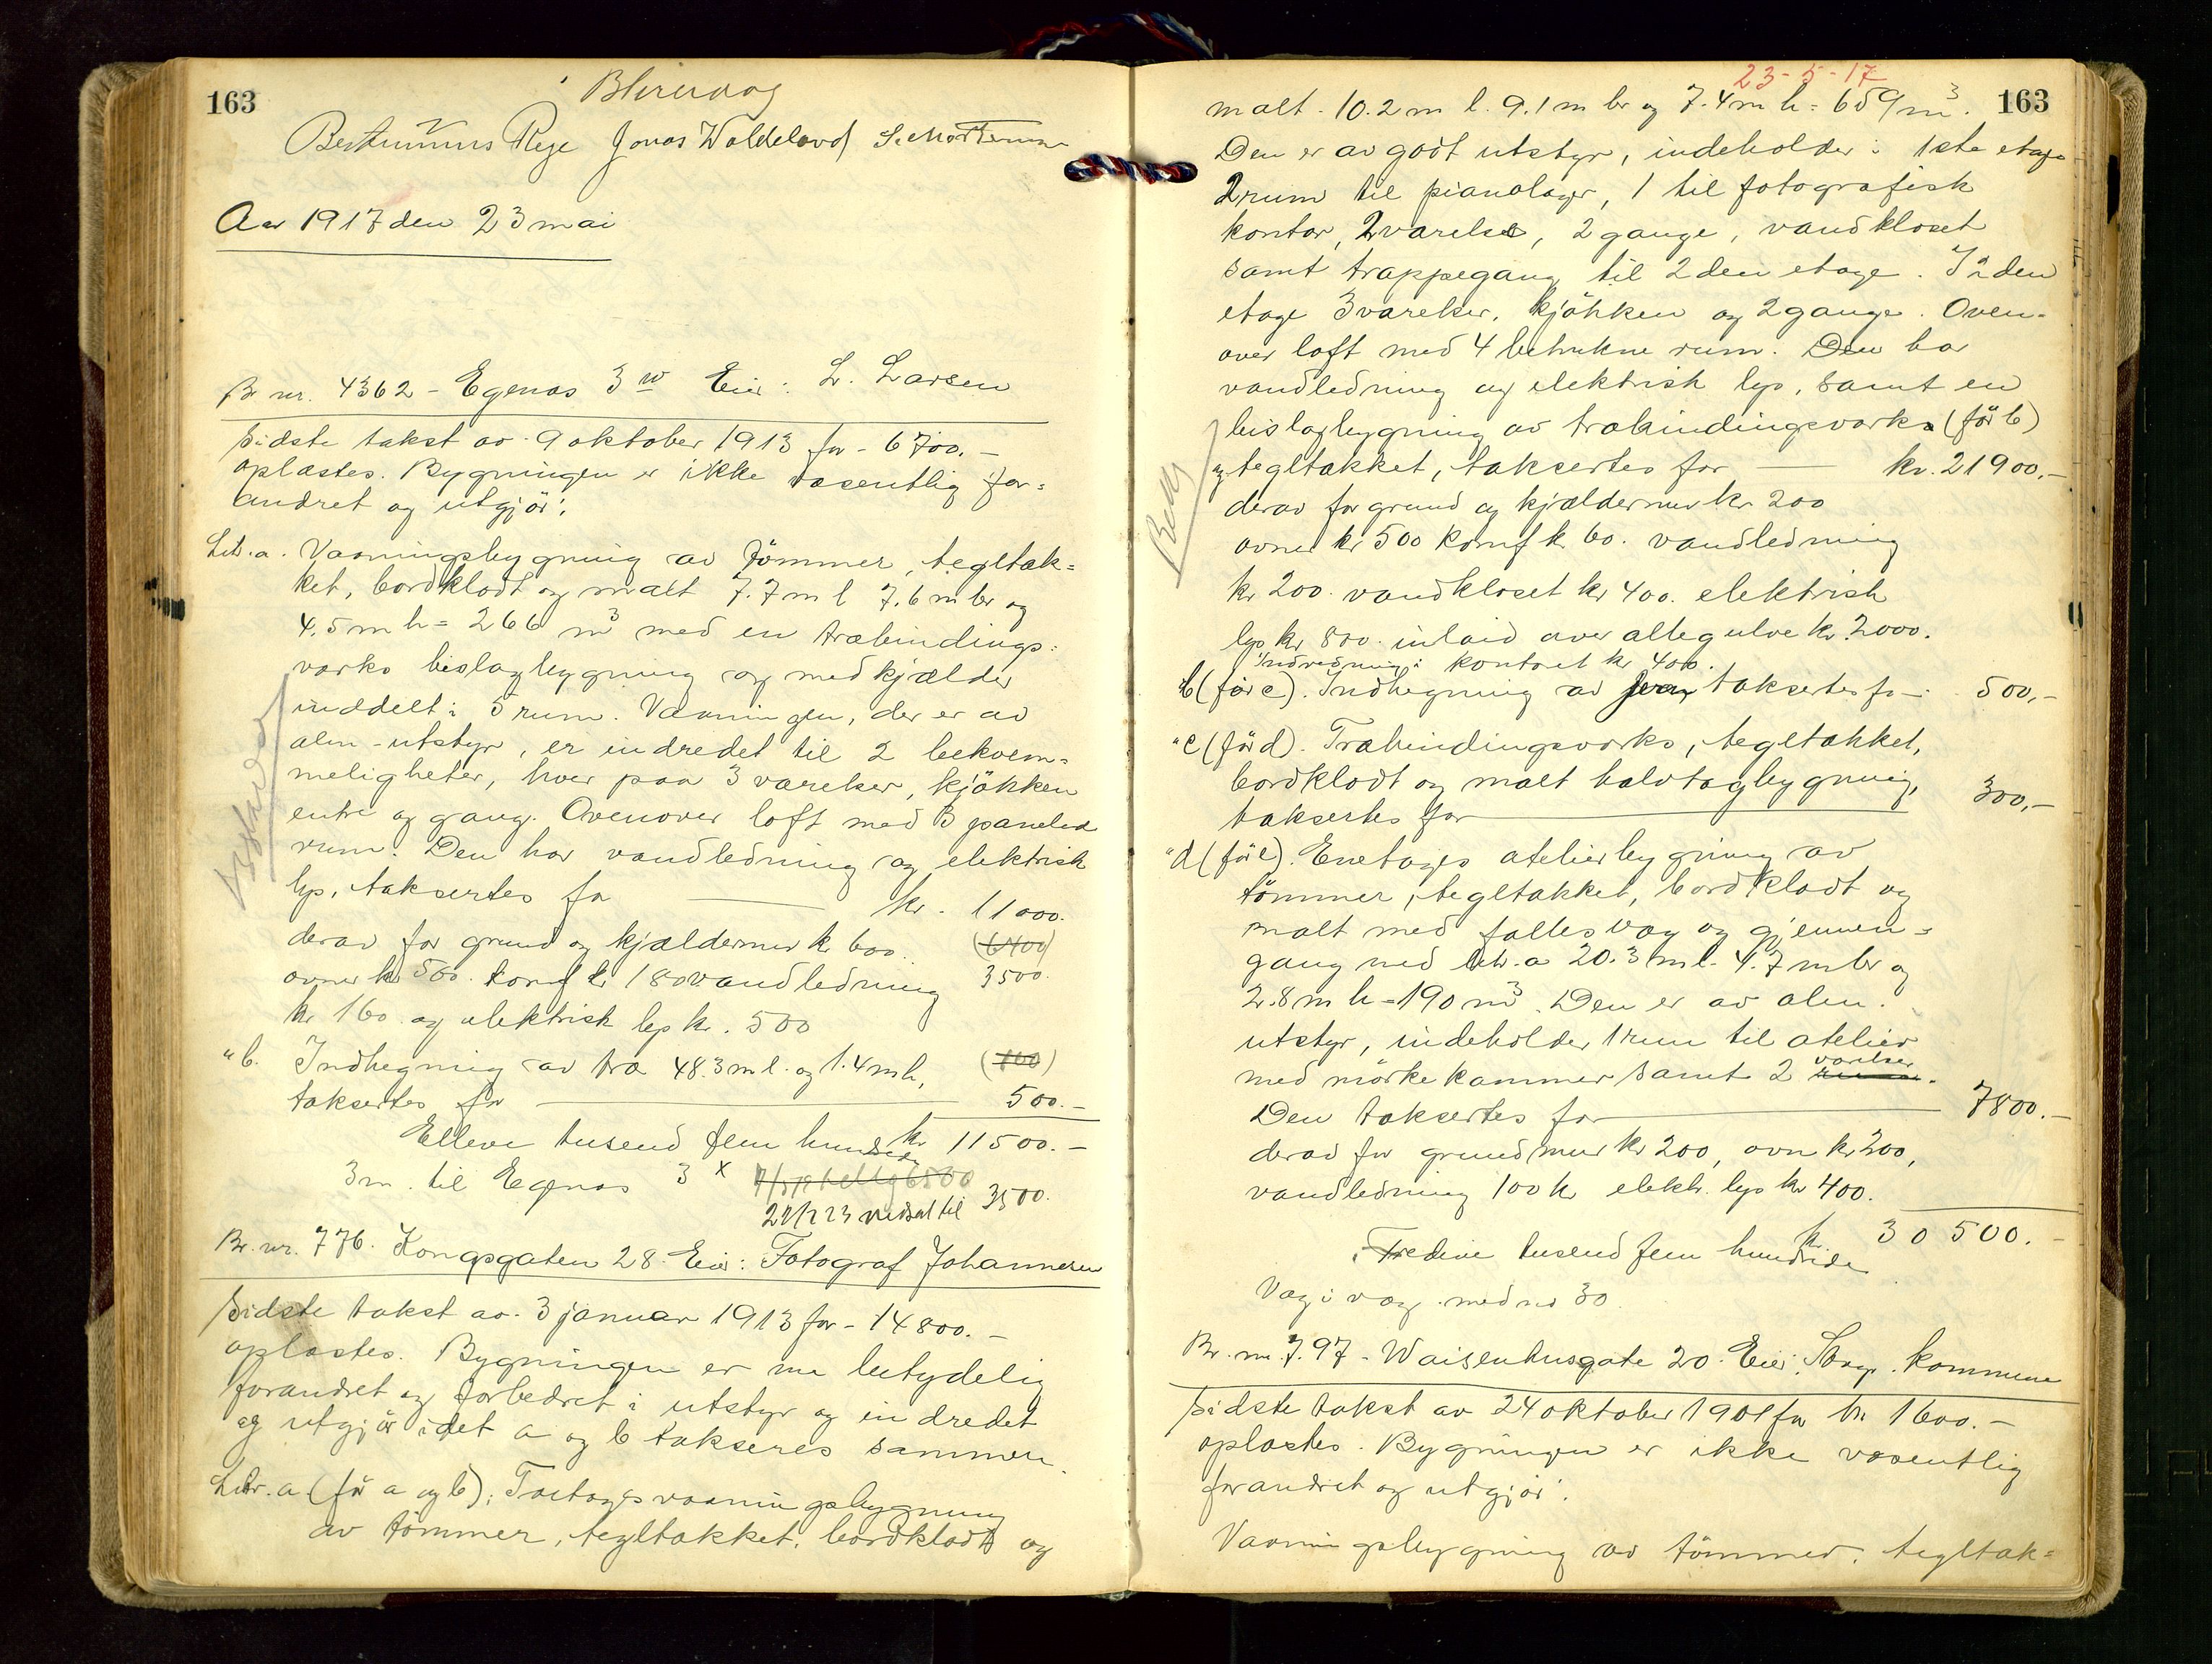 163
Rege Jonas Waldeland S. Mortensen
Aar 1917 den 23 mai
Br nr. 4362 - Egenæs 3 w Eier: L. Larsen
Sidste takst av 9 oktober 1913 for - 6700.-
oplæstes. Bygningen er ikke væsentlig for=
andret og utgjör:
Litr. a. Vaaningsbygning av tömmer, tegltæk=
ket, bordklædt og malt 7.7 m l 7.6 m br og
4.5 m h = 266 m3 med en træbindings=
værks bislagbygning og med kjælder
inddelt i 5 rum. Vaaningen, der er av
alm. utstyr, er indredet til 2 bekvem=
meligheter, hver paa 3 værelser, kjökken
entre og gang. Ovenover loft med 3 paneled
rum. Den har vandledning og elektrisk
lys, taksertes for kr. 11000.
derav for grund og kjældermur kr 600. (6400)
ovner kr 500. komf kr 180 vandledning 3500.
kr 160 og elektrisk lys kr. 500
" b. Indhegning av træ 48.3 m l. og 1.4 m h, (700)
taksertes for 500.-
Elleve tusend fem hundrede kr 11500.-
3 m. til Egenæs 3 x
nedsat til 3500.
Br. nr. 776. Kongsgaten 28 Eier: Fotograf Johannesen
Sidste takst av 3 januar 1913 for - 14800.-
oplæstes. Bygningen er nu betydelig
forandret og forbedret i utstyr og indredet
og utgjör idet a og b takseres sammen.
Litr. a (för a og b): Toetages vaaningsbygning
av tömmer, tegltækket, bordklædt og
23-5-17
163
malt - 10.2 m l. 9.1 m br og 7.4 m h = 659 m3.
Den er av godt utstyr, indeholder i 1ste etage
2 rum til pianolager, 1 til fotografisk
kontor, 2 værelse, 2 gange, vandkloset
samt trappegang til 2den etage. I 2den
etage 3 værelser, kjökken og 2 gange. Oven-
over loft med 4 betrukne rum. Den har
vandledning og elektrisk lys, samt en
bislagbygning av træbindingsværks (för b)
og tegltækket, taksertes for kr. 21900.-
derav for grund og kjældermur kr 200
ovner kr 500 komf kr 60. vandledning
kr 200. vandkloset kr 400. elektrisk
lys kr 800. inlaid over alle gulve kr 2000.
Indredning i kontoret kr 400.
b (för c). Indhegning av jern taksertes for 500.-
" c (för d). Træbindingsværks, tegltækket,
bordklædt og malt halvtagbygning,
taksertes for 300.-
" d (för e). Enetages atelierbygning av
tömmer, tegltækket, bordklædt og
malt med fælles væg og gjennem=
gang med litr. a 20.3 m l. 4.7 m br og
2.8 m h = 190 m3. Den er av alm.
utstyr, indeholder 1 rum til atelier
med mörkekammer samt 2 værelser.
Den taksertes for 7800.-
derav for grundmur kr 200, ovn kr 200,
vandledning 100 kr elektr. lys kr 400.
kr. 30500.-
Tredive tusend fem hundrede
Væg i væg med no 30.
Br. nr. 797 - Waisenhusgate 20. Eier: Stvgr. kommune
Sidste takst av 24 oktober 1901 for kr 1600.-
oplæstes. Bygningen er ikke væsentlig
forandret og utgjör:
Vaaningsbygning av tömmer, tegltæk=